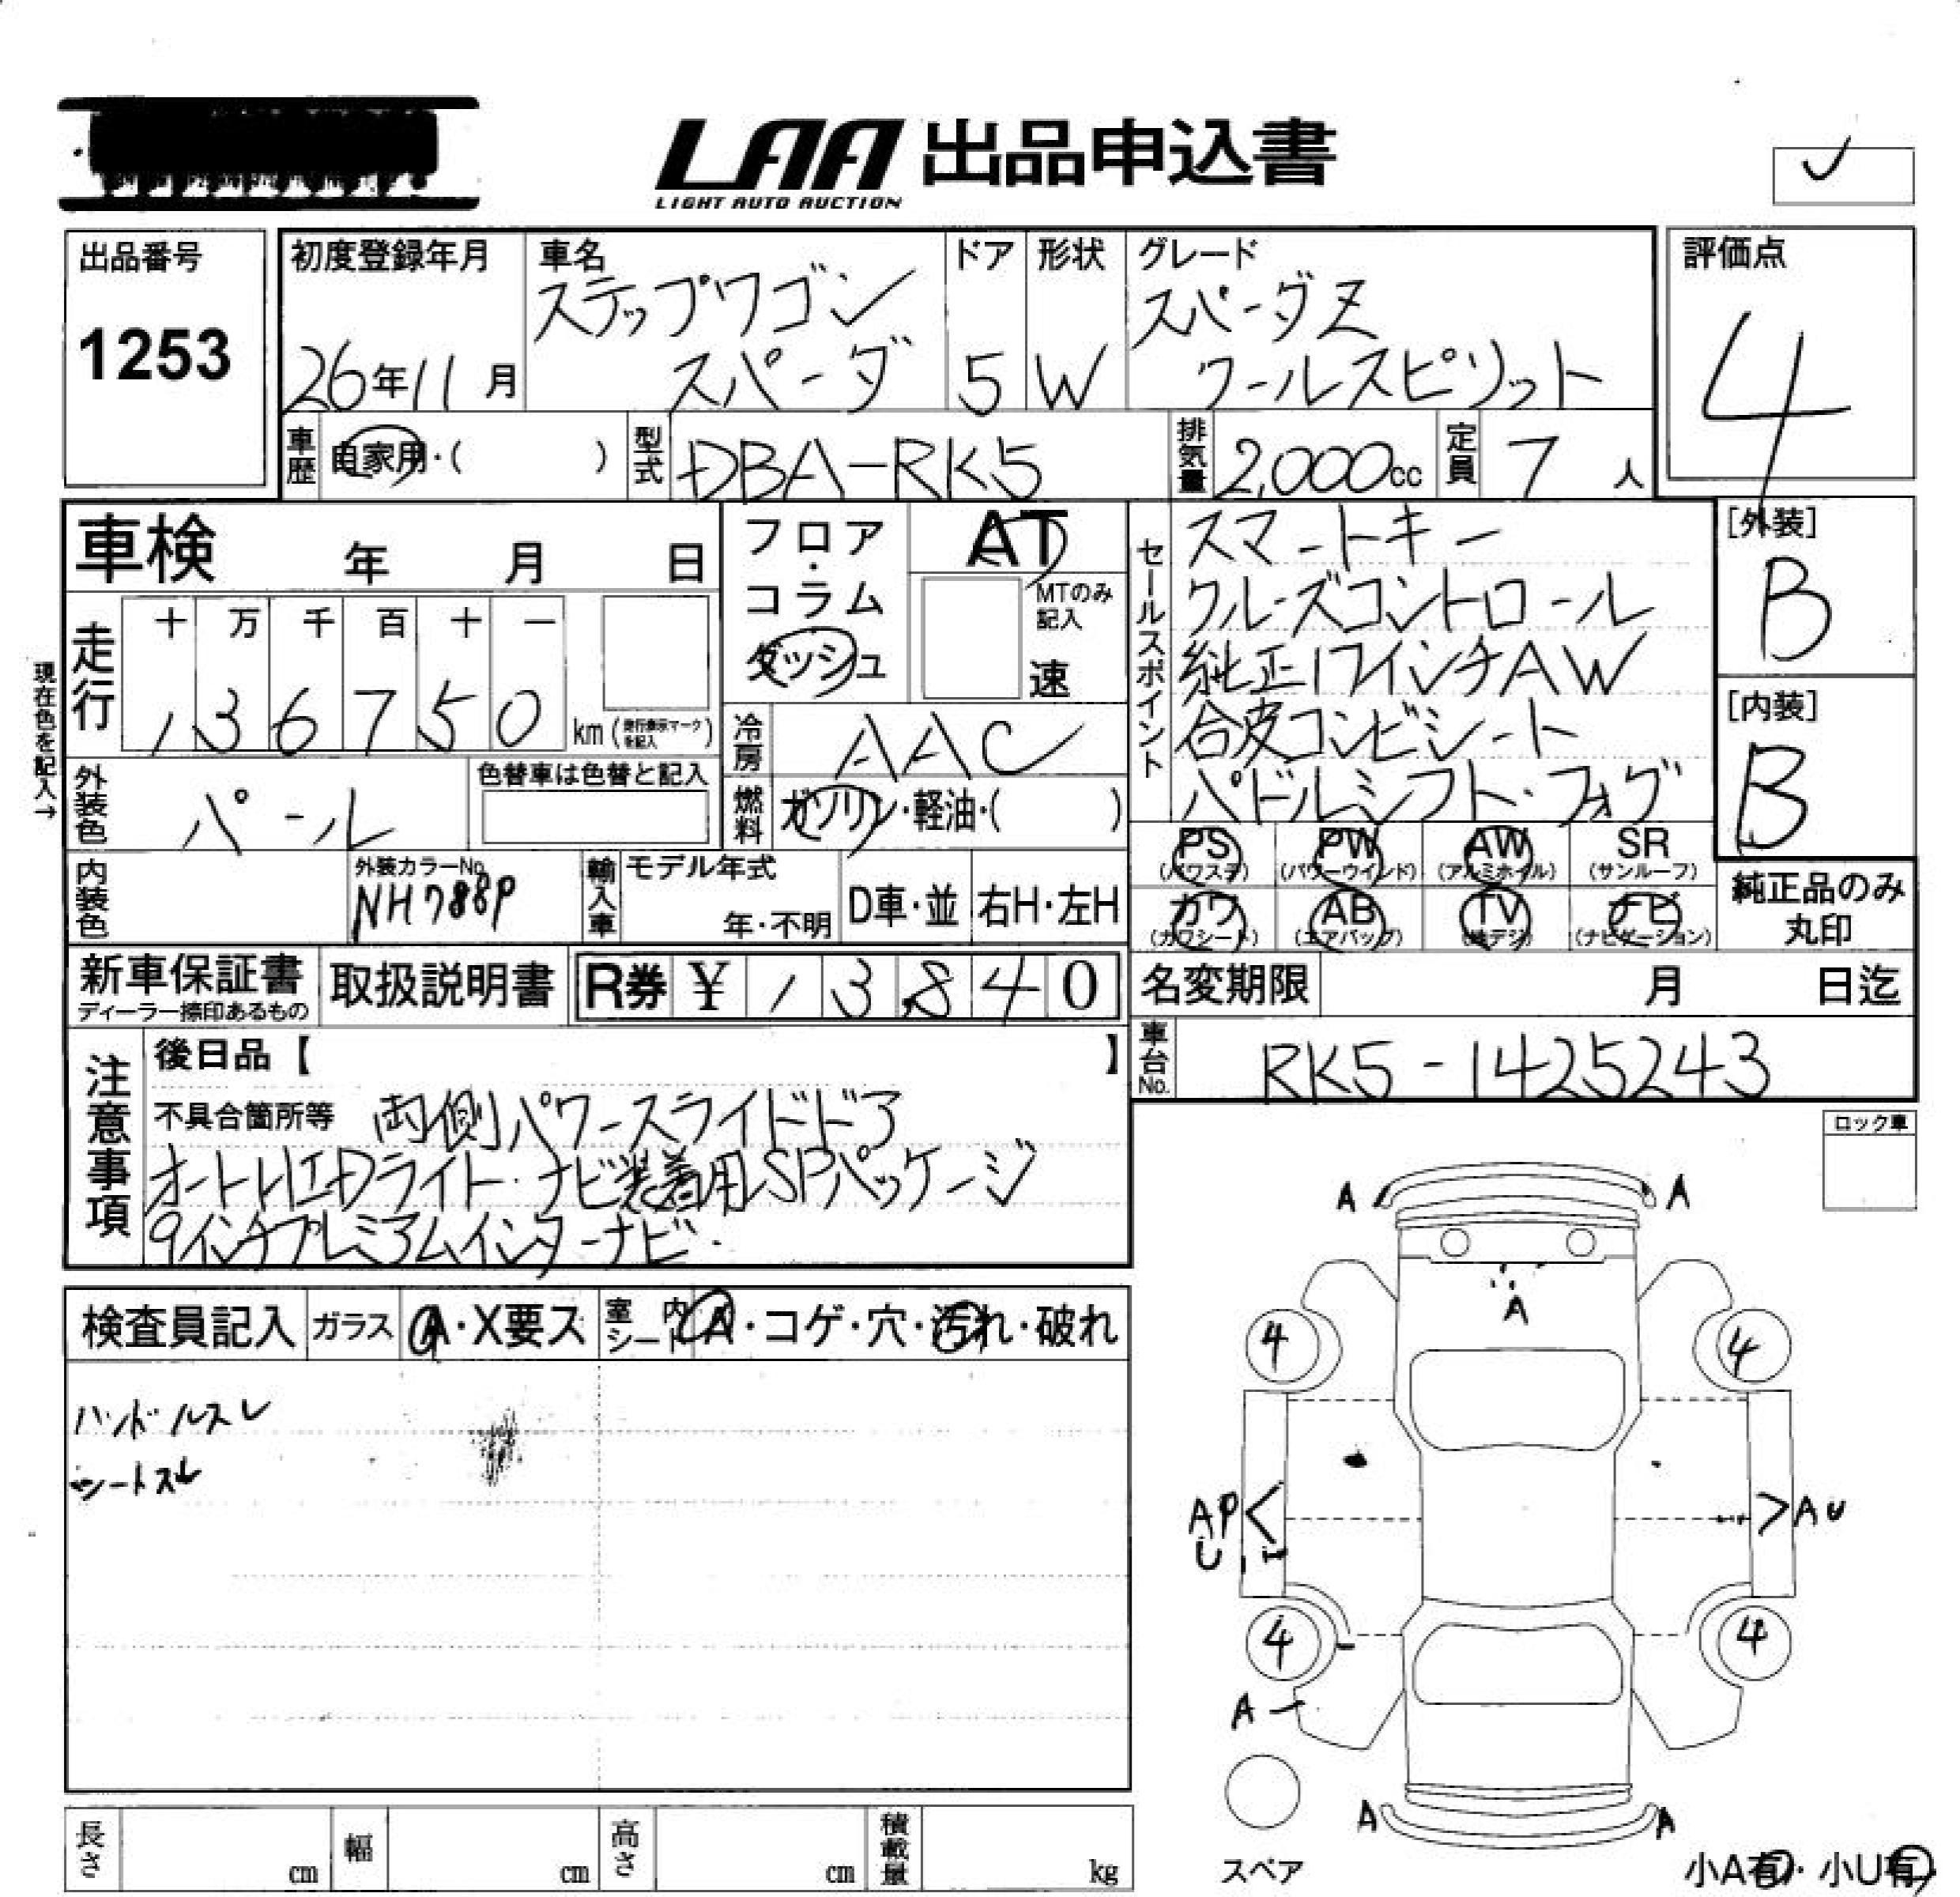 LAA 出品申込書
LIGHT AUTO AUCTION
出品番号
1253
初度登録年月
26年11月
車名
ステップワゴン
スパーダ
ドア
5
形状
W
グレード
スパーダZ
クールスピリット
評価点
4
車歴
自家用・( )
型式
DBA-RK5
排気量
2,000cc
定員
7人
[外装]
B
[内装]
B
車検 年 月 日
現在色を記入→
走行
十 万 千 百 十 一
1 3 6 7 5 0
km(走行表示マークを記入)
フロア・コラム
ダッシュ
AT
MTのみ記入
速
冷房
AAC
燃料
ガソリン・軽油・( )
セールスポイント
スマートキー
クルーズコントロール
純正17インチAW
合皮コンビシート
パドルシフト・フォグ
外装色
パール
色替車は色替と記入
内装色
外装カラーNo.
NH788P
輸入車
モデル年式
年・不明
D車・並
右H・左H
PS (パワステ)
PW (パワーウインド)
AW (アルミホイル)
SR (サンルーフ)
カワ (カワシート)
AB (エアバッグ)
TV (地デジ)
ナビ (ナビゲーション)
純正品のみ
丸印
新車保証書
ディーラー捺印あるもの
取扱説明書
R券 ¥ 1 3,8 4 0
名変期限 月 日迄
車台No.
RK5-1425243
注意事項
後日品【 】
不具合箇所等 両側パワースライドドア
オートHIDライト・ナビ装着用SPパッケージ
9インチプレミアムインターナビ・
ロック車
検査員記入
ガラス
A・X要ス
室内シート
A・コゲ・穴・汚れ・破れ
ハンドルスレ
シートスレ
A A
A
4 4
AP
U
AU
4 4
A
A A
スペア
小A有・小U有
長さ cm
幅 cm
高さ cm
積載量 kg